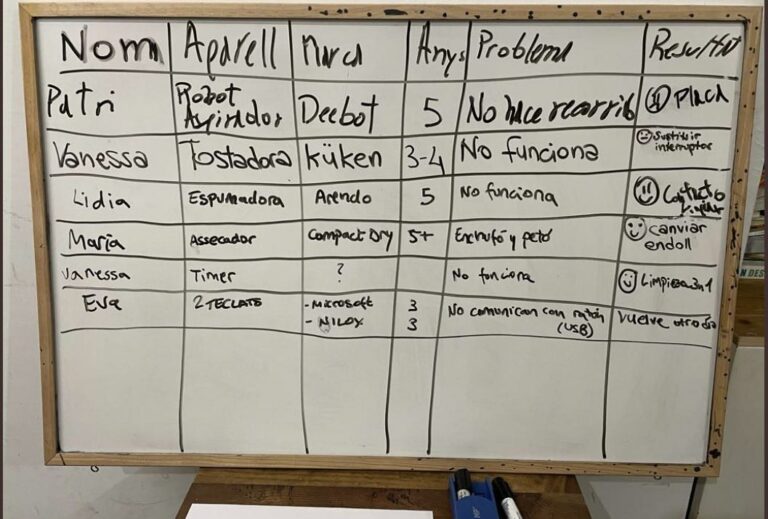 Nom Aparell Marca Anys Problema Resultat
Patri Robot Aspirador Deebot 5 No hace recorrido Placa
Vanessa Tostadora Küken 3-4 No funciona Sustituir interruptor
Lidia ESPUMADORA Arendo 5 No funciona Contacto
María Assecador Compact Dry 5+ Enchufó y petó canviar endoll
Vanessa Timer ? No funciona Limpieza 3n1
Eva 2 TECLATS - Microsoft 3 No comunican con ratón (USB) Vuelve otro día
- NILOX 3